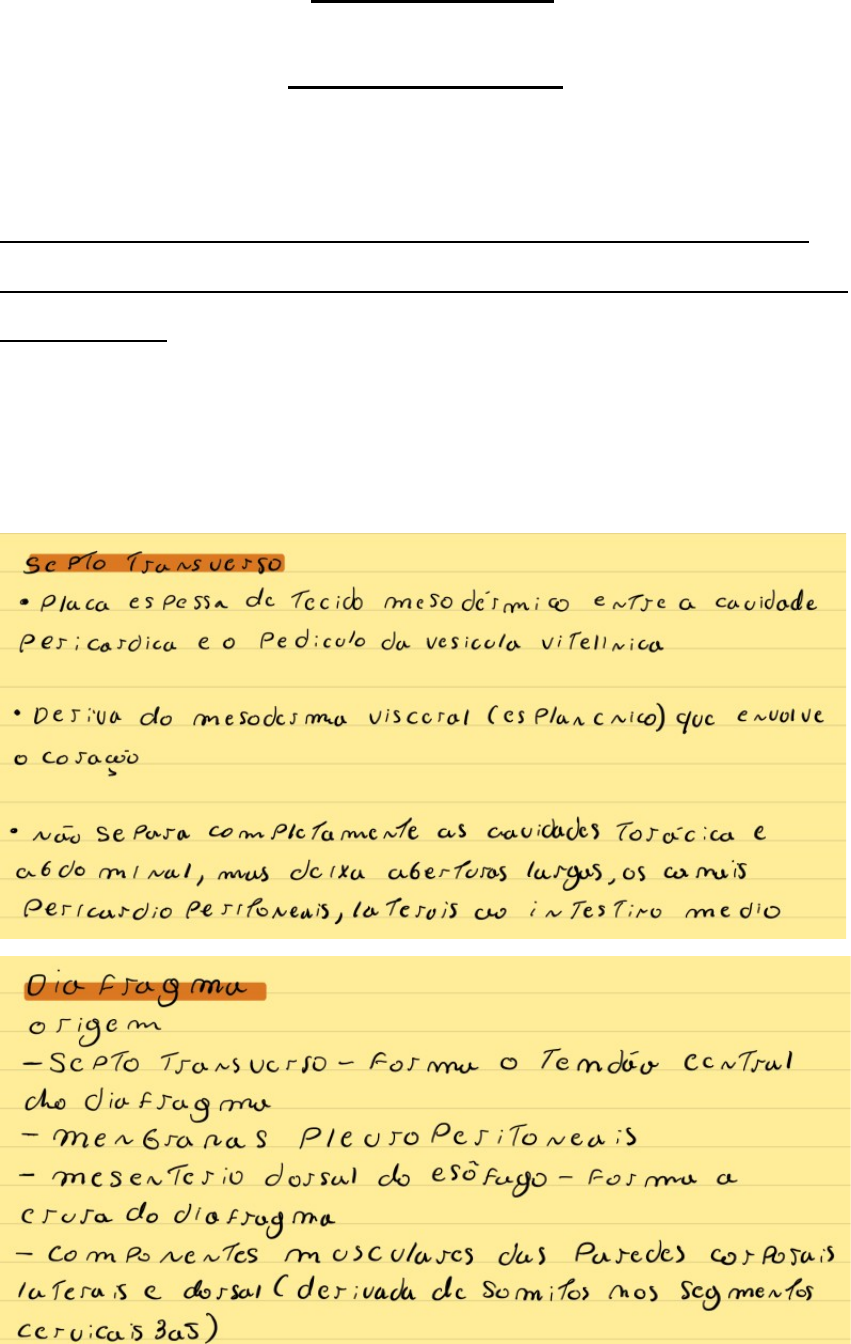 Septo Transverso
• Placa espessa de Tecido mesodérmico entre a cavidade
Pericardica e o Pediculo da vesicula vitelínica
• Deriva do mesoderma visceral (esplancnico) que envolve
o coração
• não separa completamente as cavidades Torácica e
abdominal, mas deixa aberturas largas, os camais
Pericardio Peritoneais, laterais ao intestino medio
Diafragma
origem
- Septo Transverso - Forma o Tendão central
do diafragma
- menbranas Pleuro Peritoneais
- mesenterio dorsal do esôfago - Forma a
crura do diafragma
- Componentes musculares das Paredes corporais
laterais e dorsal (derivada de somitos nos segmentos
cervicais 3a5)